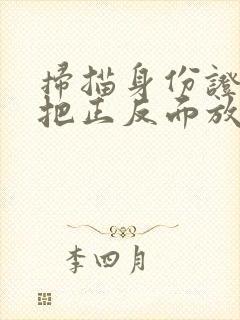 掃描身份證
把正反而放
李四月